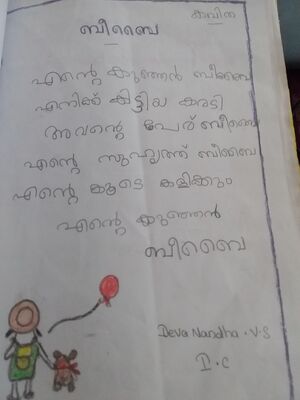 കവിത
ബീബൈ
എന്റെ കുഞ്ഞൻ ബീബൈ
എനിക്ക് കിട്ടിയ കരടി
അവന്റെ പേര് ബീബൈ
എന്റെ സുഹൃത്ത് ബീബൈ
എന്റെ കൂടെ കളിക്കും
എന്റെ കുഞ്ഞൻ
ബീബൈ
Deva Nandha . V. S
I . C